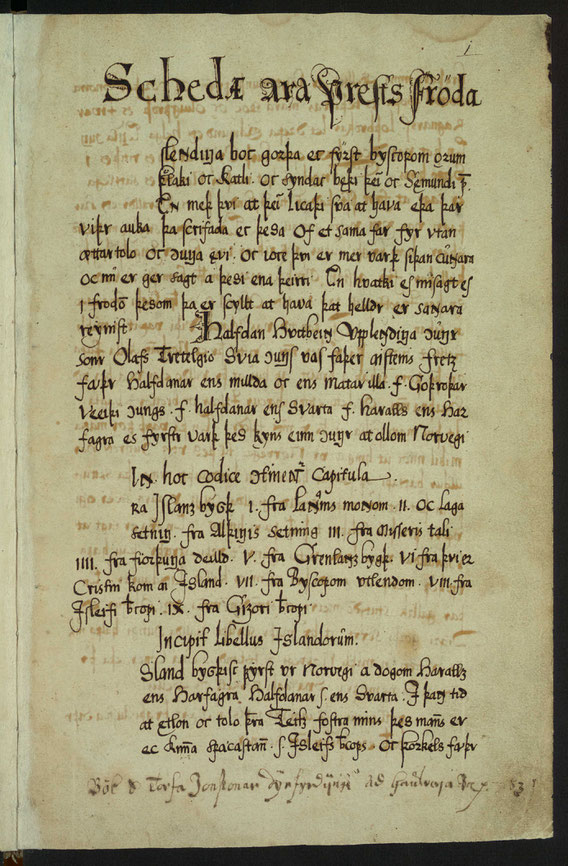 1
Schedæ ara prests fröda
slendinga boc gorþa ec fyrst byscopom orum
Þorlaki oc Katli. oc syndac beþi þeim oc Sæmundi p̄.
En meþ þvi at þeim licaþi sva at hava eþa þar
viþr auka þa scrifaða ec þessa of et sama far fyr utan
ættartolo oc konunga ævi. oc iocc þvi er mer varþ siþan cunnara
oc nu er ger sagt a þessi en a þeirri. En hvatki es missagt es
i frodom þessom þa er scyllt at hava þat helldr er sannara
reynist. Halfdan Hvitbein Upplendinga konungr
sonr Olafs Tretelgio Svia konungs vas faþer aisteins fretz
faþr Halfdanar ens millda oc ens matar illa. f. Goþroþar
Veiþi konungs. f. halfdanar ens Svarta f. haralls ens Har
fagra es fyrstr varþ þess kyns einn konungr at ollom Norvegi
In hoc codice continentur Capitula
ra Islanz bygþ I. fra Landnams monnom. II. oc laga
setning. fra Alþingis setning III. fra Misseris tali
IIII. fra fiorþunga deilld. V. fra Grenlanz bygþ. VI fra þvi er
Cristni kom a Island. VII. fra Byscopom utlendom. VIII. fra
Isleifi bcopi. IX. fra Gizori bcopi
Incipit Libellus Islandorum.
Sland bygþist fyrst ur Norvegi a dogom Harallz
ens Harfagra Halfdanar s. ens Svarta. I þann tid
at ætlon oc tolo þeira Teitz fostra mins þess manns er
ec kunna spacastan. s. Isleifs bcops. oc þorkels faþr
Bök S Torfa Jonssonar